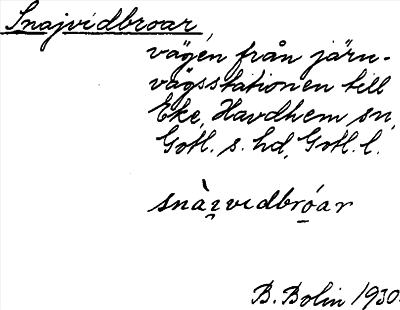 Snajvidbroar,
vägen från järn-
vägsstationen till
Eke, Havdhem sn,
Gotl. s. hd, Gotl. l.
snàı̯vıdbrǫ́ar
B. Bolin 1930.